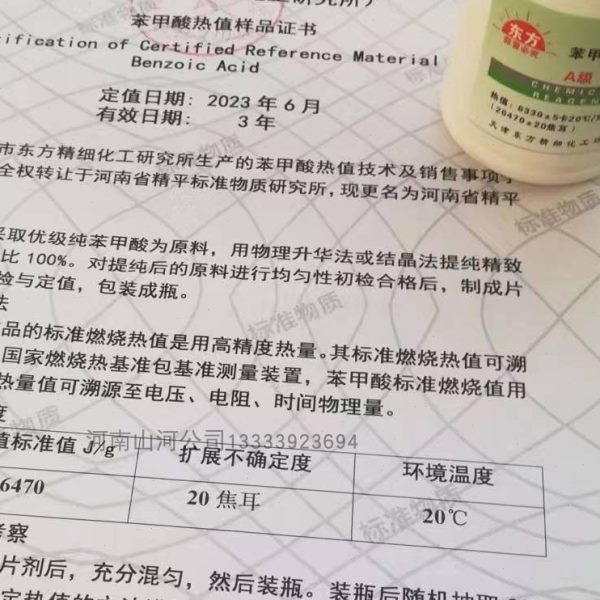 苯甲酸热值样品证书
tification of Certified Reference Material
Benzoic Acid
定值日期: 2023 年 6 月
有效日期: 3 年
市东方精细化工研究所生产的苯甲酸热值技术及销售事项于
全权转让于河南省精平标准物质研究所,现更名为河南省精平
采取优级纯苯甲酸为原料,用物理升华法或结晶法提纯精致
比 100%。对提纯后的原料进行均匀性初检合格后,制成片
检与定值,包装成瓶。
法
品的标准燃烧热值是用高精度热量。其标准燃烧热值可溯
国家燃烧热基准包基准测量装置,苯甲酸标准燃烧值用
热量值可溯源至电压、电阻、时间物理量。
度
河南山河公司13333923694
值标准值 J/g 扩展不确定度 环境温度
6470 20 焦耳 20℃
考察
片剂后,充分混匀,然后装瓶。装瓶后随机抽取
东方
苯甲
A级
CHEMIC
REAGEN
热值: 6330±5卡20℃/
(26470±20焦耳)
天津东方精细化工
标准物质
标准物质
标准物质
标准物质
标准物质
标准物质